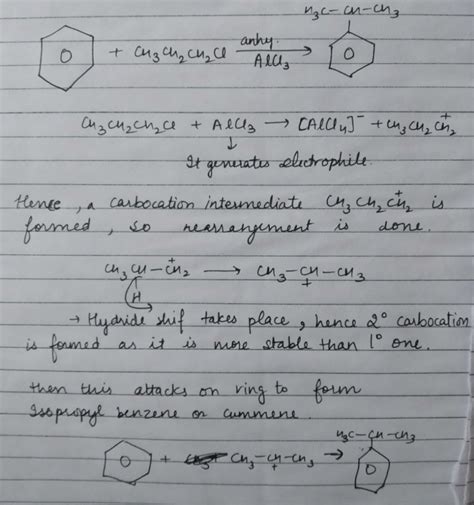 H3C – CH – CH3
+ CH3CH2CH2Cl anhy. AlCl3 →
CH3CH2CH2Cl + AlCl3 → [AlCl4]⁻ + CH3CH2C⁺H2
↓
It generates electrophile.
Hence, a carbocation intermediate CH3CH2C⁺H2 is
formed, so rearrangement is done.
CH3CH – C⁺H2 → CH3 – CH – CH3
H +
→ Hydride shif takes place, hence 2° carbocation
is formed as it is more stable than 1° one.
then this attacks on ring to form
Isopropyl benzene or cummene.
H3C – CH – CH3
+ CH3 – CH – CH3 →
+